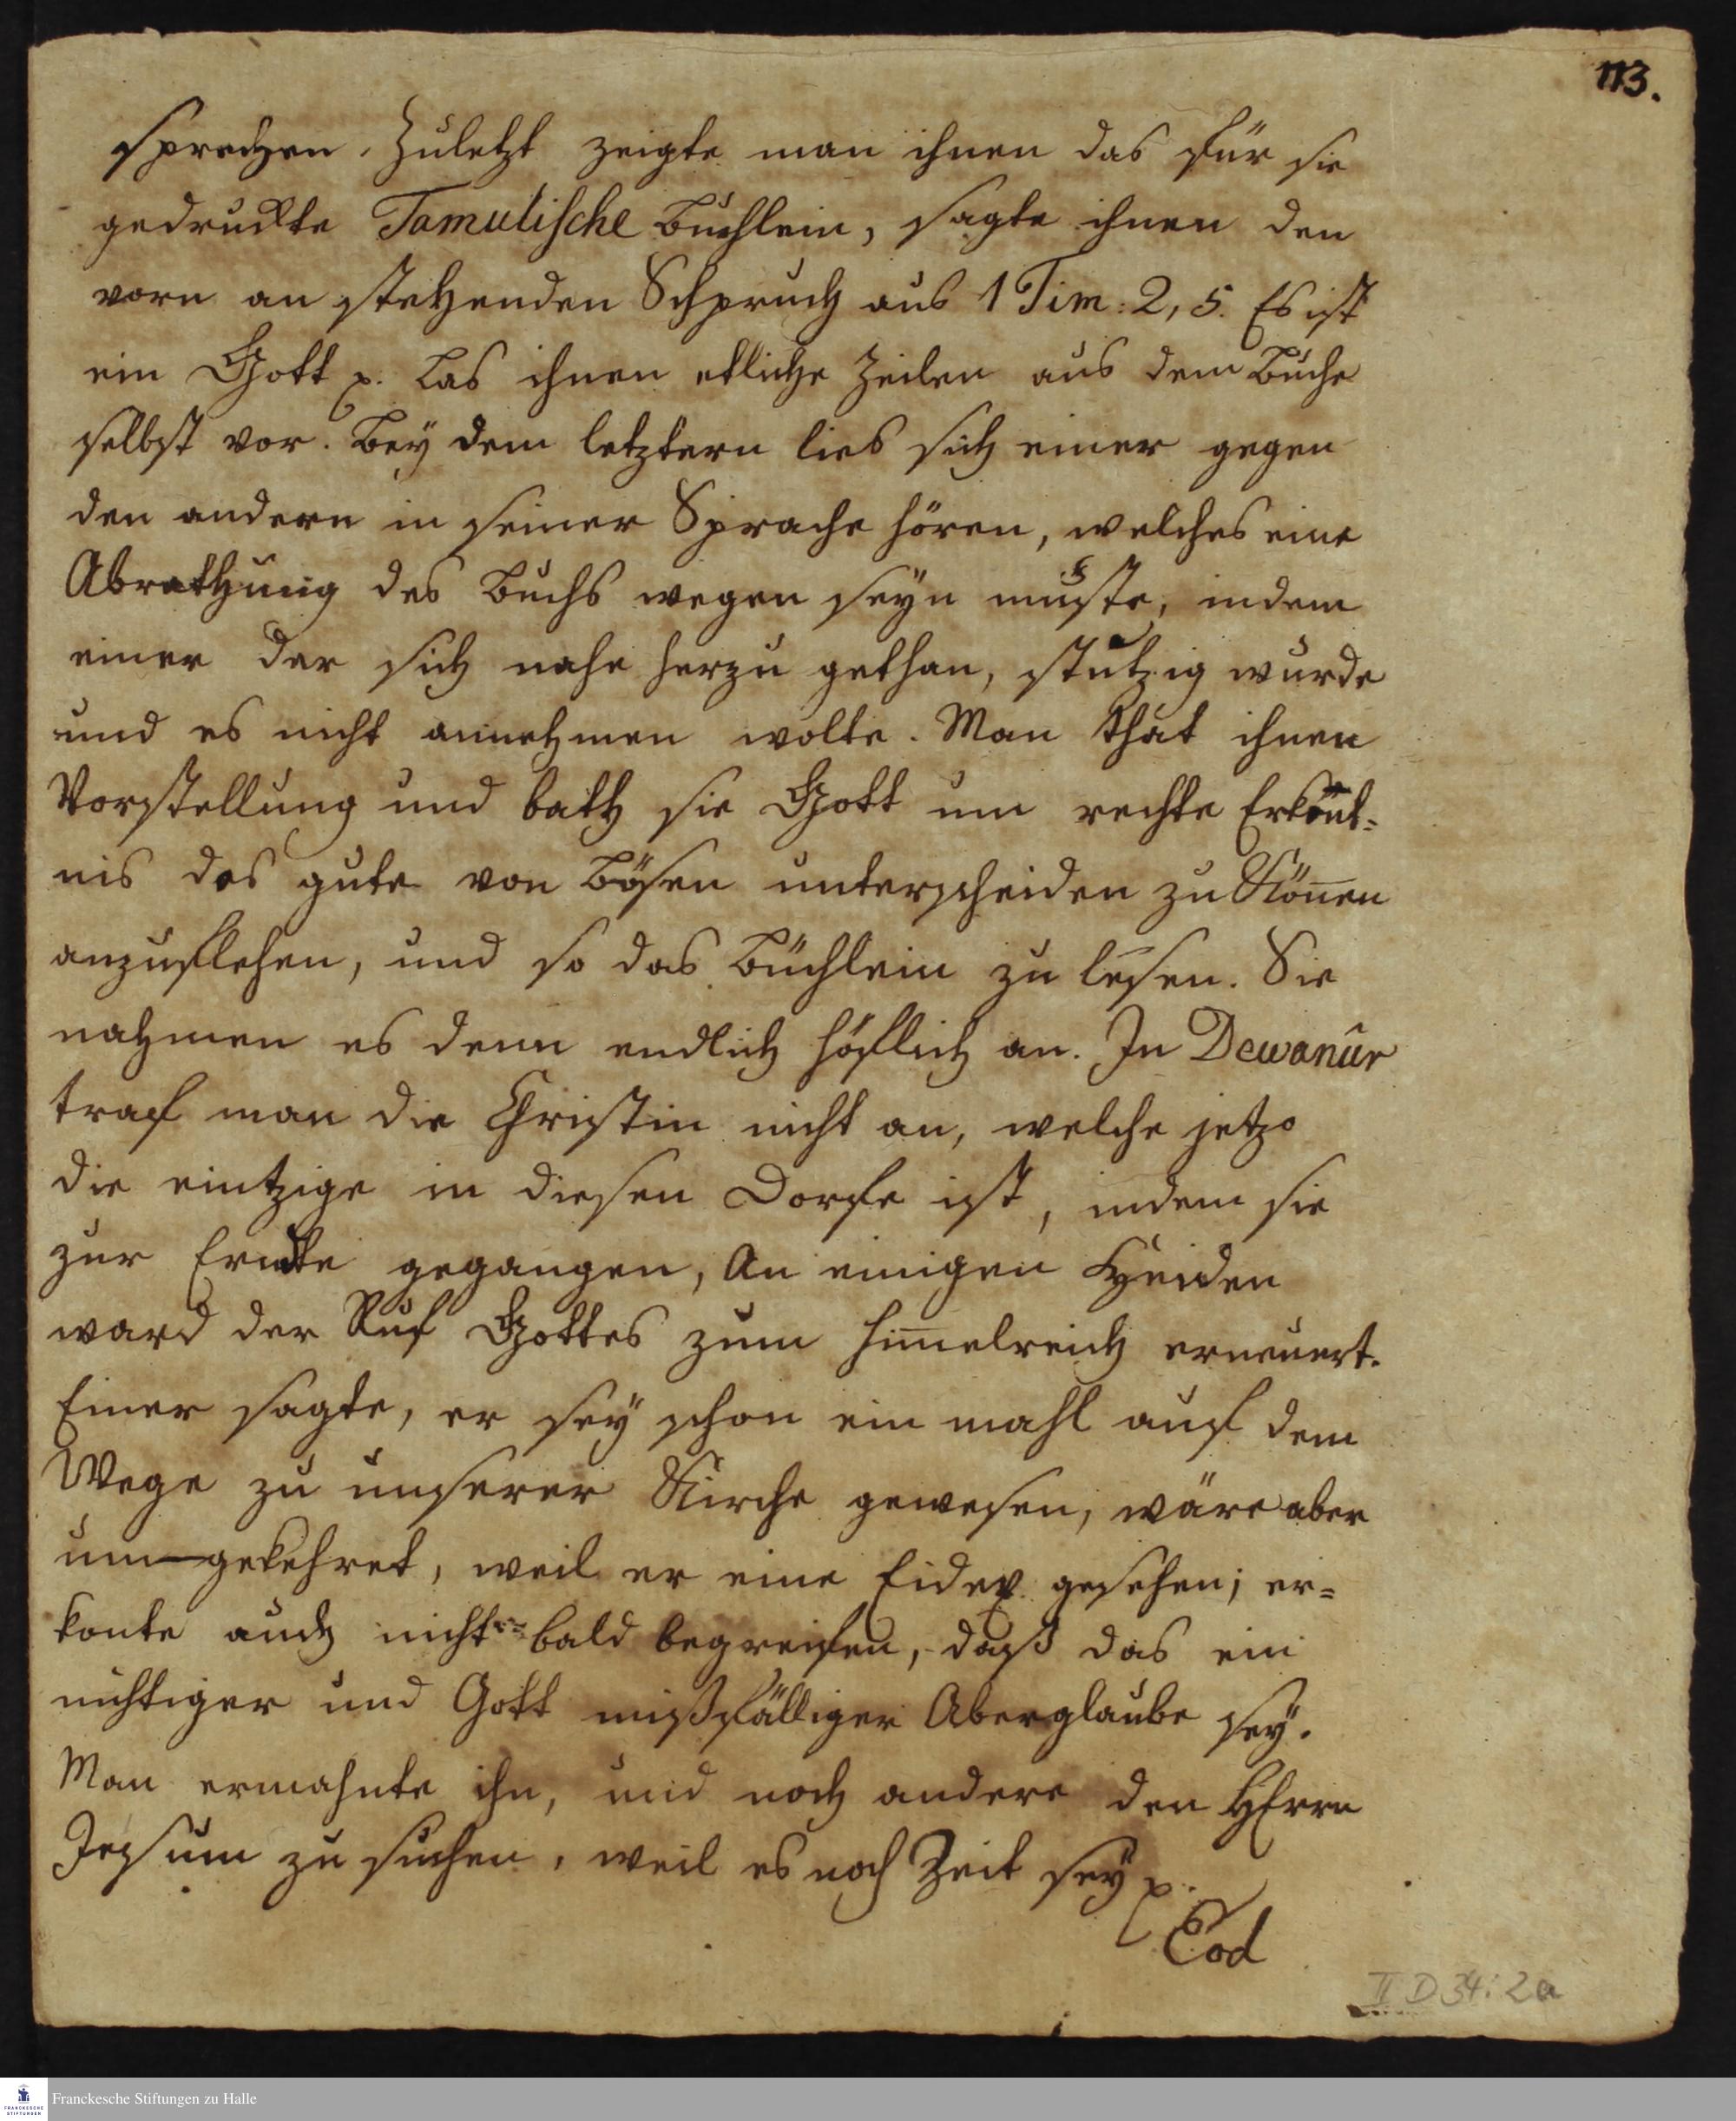 113.
sprechen. Zuletzt zeigte man ihnen das für sie
gedruckte Tamulische Büchlein, sagte ihnen den
vorn an stehenden Schpruch aus 1 Tim: 2, 5. Es ist
ein Gott p. las ihnen etliche Zeilen aus dem Buche
selbst vor. Bey dem letztern lies sich einer gegen
den andern in seiner Sprache hören, welches eine
Abrathung des Buchs wegen seyn muste, indem
einer der sich nahe herzu gethan, stutzig wurde
und es nicht annehmen wolte. Man that ihnen
Vorstellung und bath sie Gott um rechte Erkänt-
nis das gute von Bösen unterscheiden zu Könen
anzuflehen, und so das Büchlein zu lesen. Sie
nahmen es denn endlich höflich an. In Dewanûr
traf man die Christin nicht an, welche jetzo
die eintzige in diesen Dorfe ist, indem sie
zur Erndte gegangen, An einigen Heiden
ward der Ruf Gottes zum Himelreich erneuert.
Einer sagte, er sey schon ein mahl auf dem
Wege zu unserer Kirche gewesen, wäre aber
umgekehret, weil er eine Eidex gesehen; er=
konte auch nicht bald begreifen, daß das ein
nichtiger und Gott mißfälliger Aberglaube sey.
Man ermahnte ihn, und noch andere den HErrn
Jesum zu suchen, weil es noch Zeit sey p.
Eod
II D 34: 2a
Franckesche Stiftungen zu Halle
FRANCKESCHE STIFTUNGEN